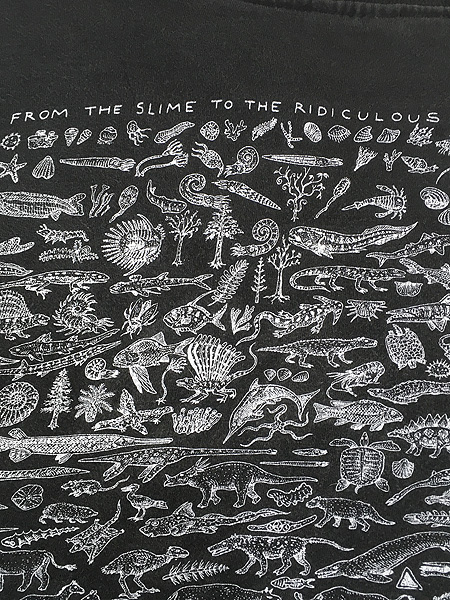 FROM THE SLIME TO THE RIDICULOUS